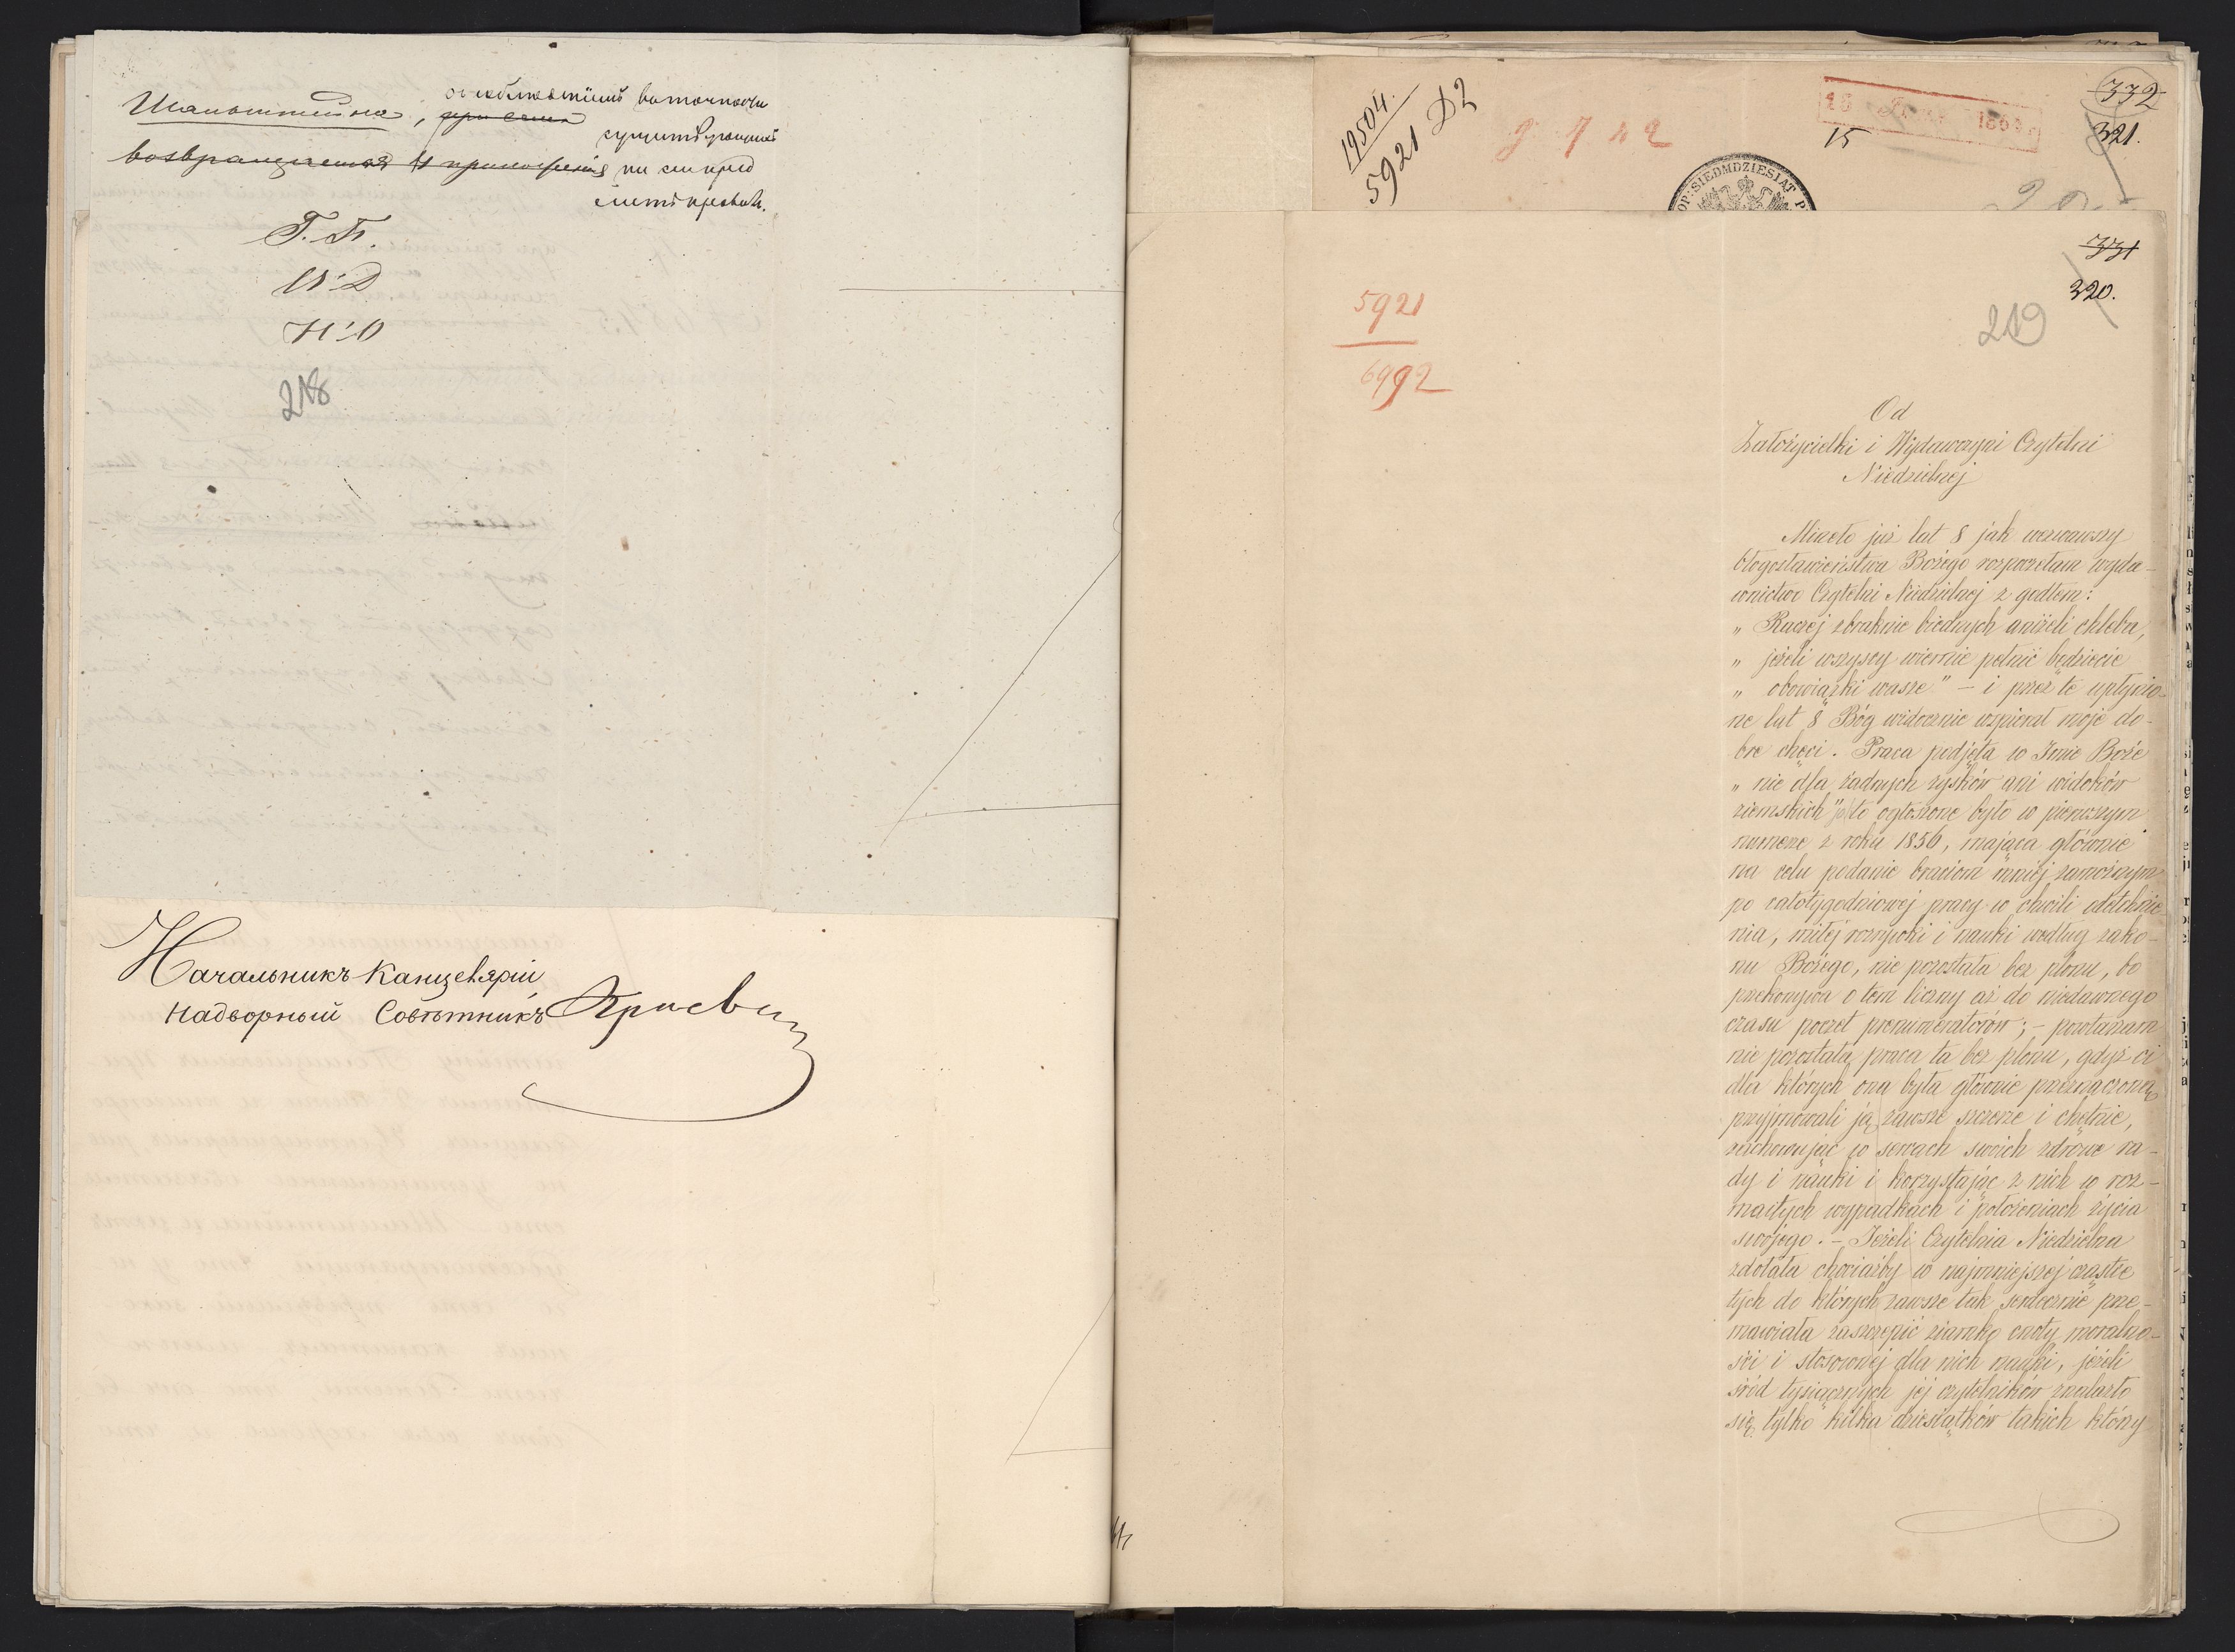 Шапштейна,
Г. Г.
И. Д
Н. О
218
Начальникъ Канцеляріи,
Надворный Совѣтникъ
19504.
5921 D2
15
332
321.
SIEDMDZIESIĄT
331
320.
219
5921
6992
Od
Założycielki i Wydawczyni Czytelni
Niedzielnej
Mineło już lat 8 jak wezwawszy
błogosławieństwa Bożego rozpoczełam wyda-
wnictwo Czytelni Niedzielnej z godłem:
„ Raczej zbraknie biednych aniżeli chleba,
„ jeżeli wszyscy wiernie pełnić będziecie
„ obowiązki wasze" – i przez te upłynio-
ne lat 8 Bóg widocznie wspierał moje do-
bre chęci. Praca podjęta w Imie Boże
„ nie dla żadnych zysków ani widoków
ziemskich" jak to ogłoszone było w pierwszym
numerze z roku 1856, mająca głównie
na celu podanie braciom mniej zamożnym
po całotygodniowej pracy w chwili odetchnie-
nia, miłej rozrywki i nauki według zako-
nu Bożego, nie pozostała bez plonu, bo
przekonywa o tem liczny aż do niedawnego
czasu poczet prenumeratorów; – powtarzam
nie pozostała praca ta bez plonu, gdyż ci
dla których ona była głównie przeznaczoną
przyjmowali ją zawsze szczerze i chętnie,
zachowując w sercach swoich zdrowe ra-
dy i nauki i korzystając z nich w roz-
maitych wypadkach i położeniach życia
swojego. – Jeżeli Czytelnia Niedzielna
zdołała chociażby w najmniejszej cząstce
tych do których zawsze tak serdecznie prze-
mawiała zaszczepić ziarnko cnoty, moralno-
ści i stosownej dla nich nauki, jeżeli
śród tysiącznych jej czytelników znalazło
się tylko kilka dziesiątków takich którzy